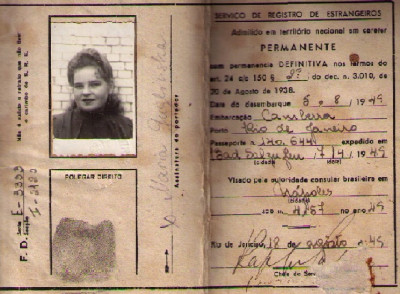 Não é valido o retrato que não tiver
o carimbo do S. R. E.
F. D. Serie E - 3333
Secção I - 2400
POLEGAR DIREITO
Assinatura do portador
Maria
SERVIÇO DE REGISTRO DE ESTRANGEIROS
Admitido em território nacional em carater
PERMANENTE
com permanencia DEFINITIVA nos termos do
art. 24 c/c 150 § 2º do dec. n. 3.010, de
20 de Agosto de 1938.
Data do desembarque 5 - 8 / 1949
Embarcação Camberra
Porto Rio de Janeiro
Passaporte n. 140.6441 expedido em
Bad Salzuflen 7 / 4 / 1949
(cidade) (data)
Visado pela autoridade consular brasileira em
Nápoles
(cidade)
sob n. 4167 no ano 49
Rio de Janeiro, 18 de agosto de 49
Chefe do Serv.